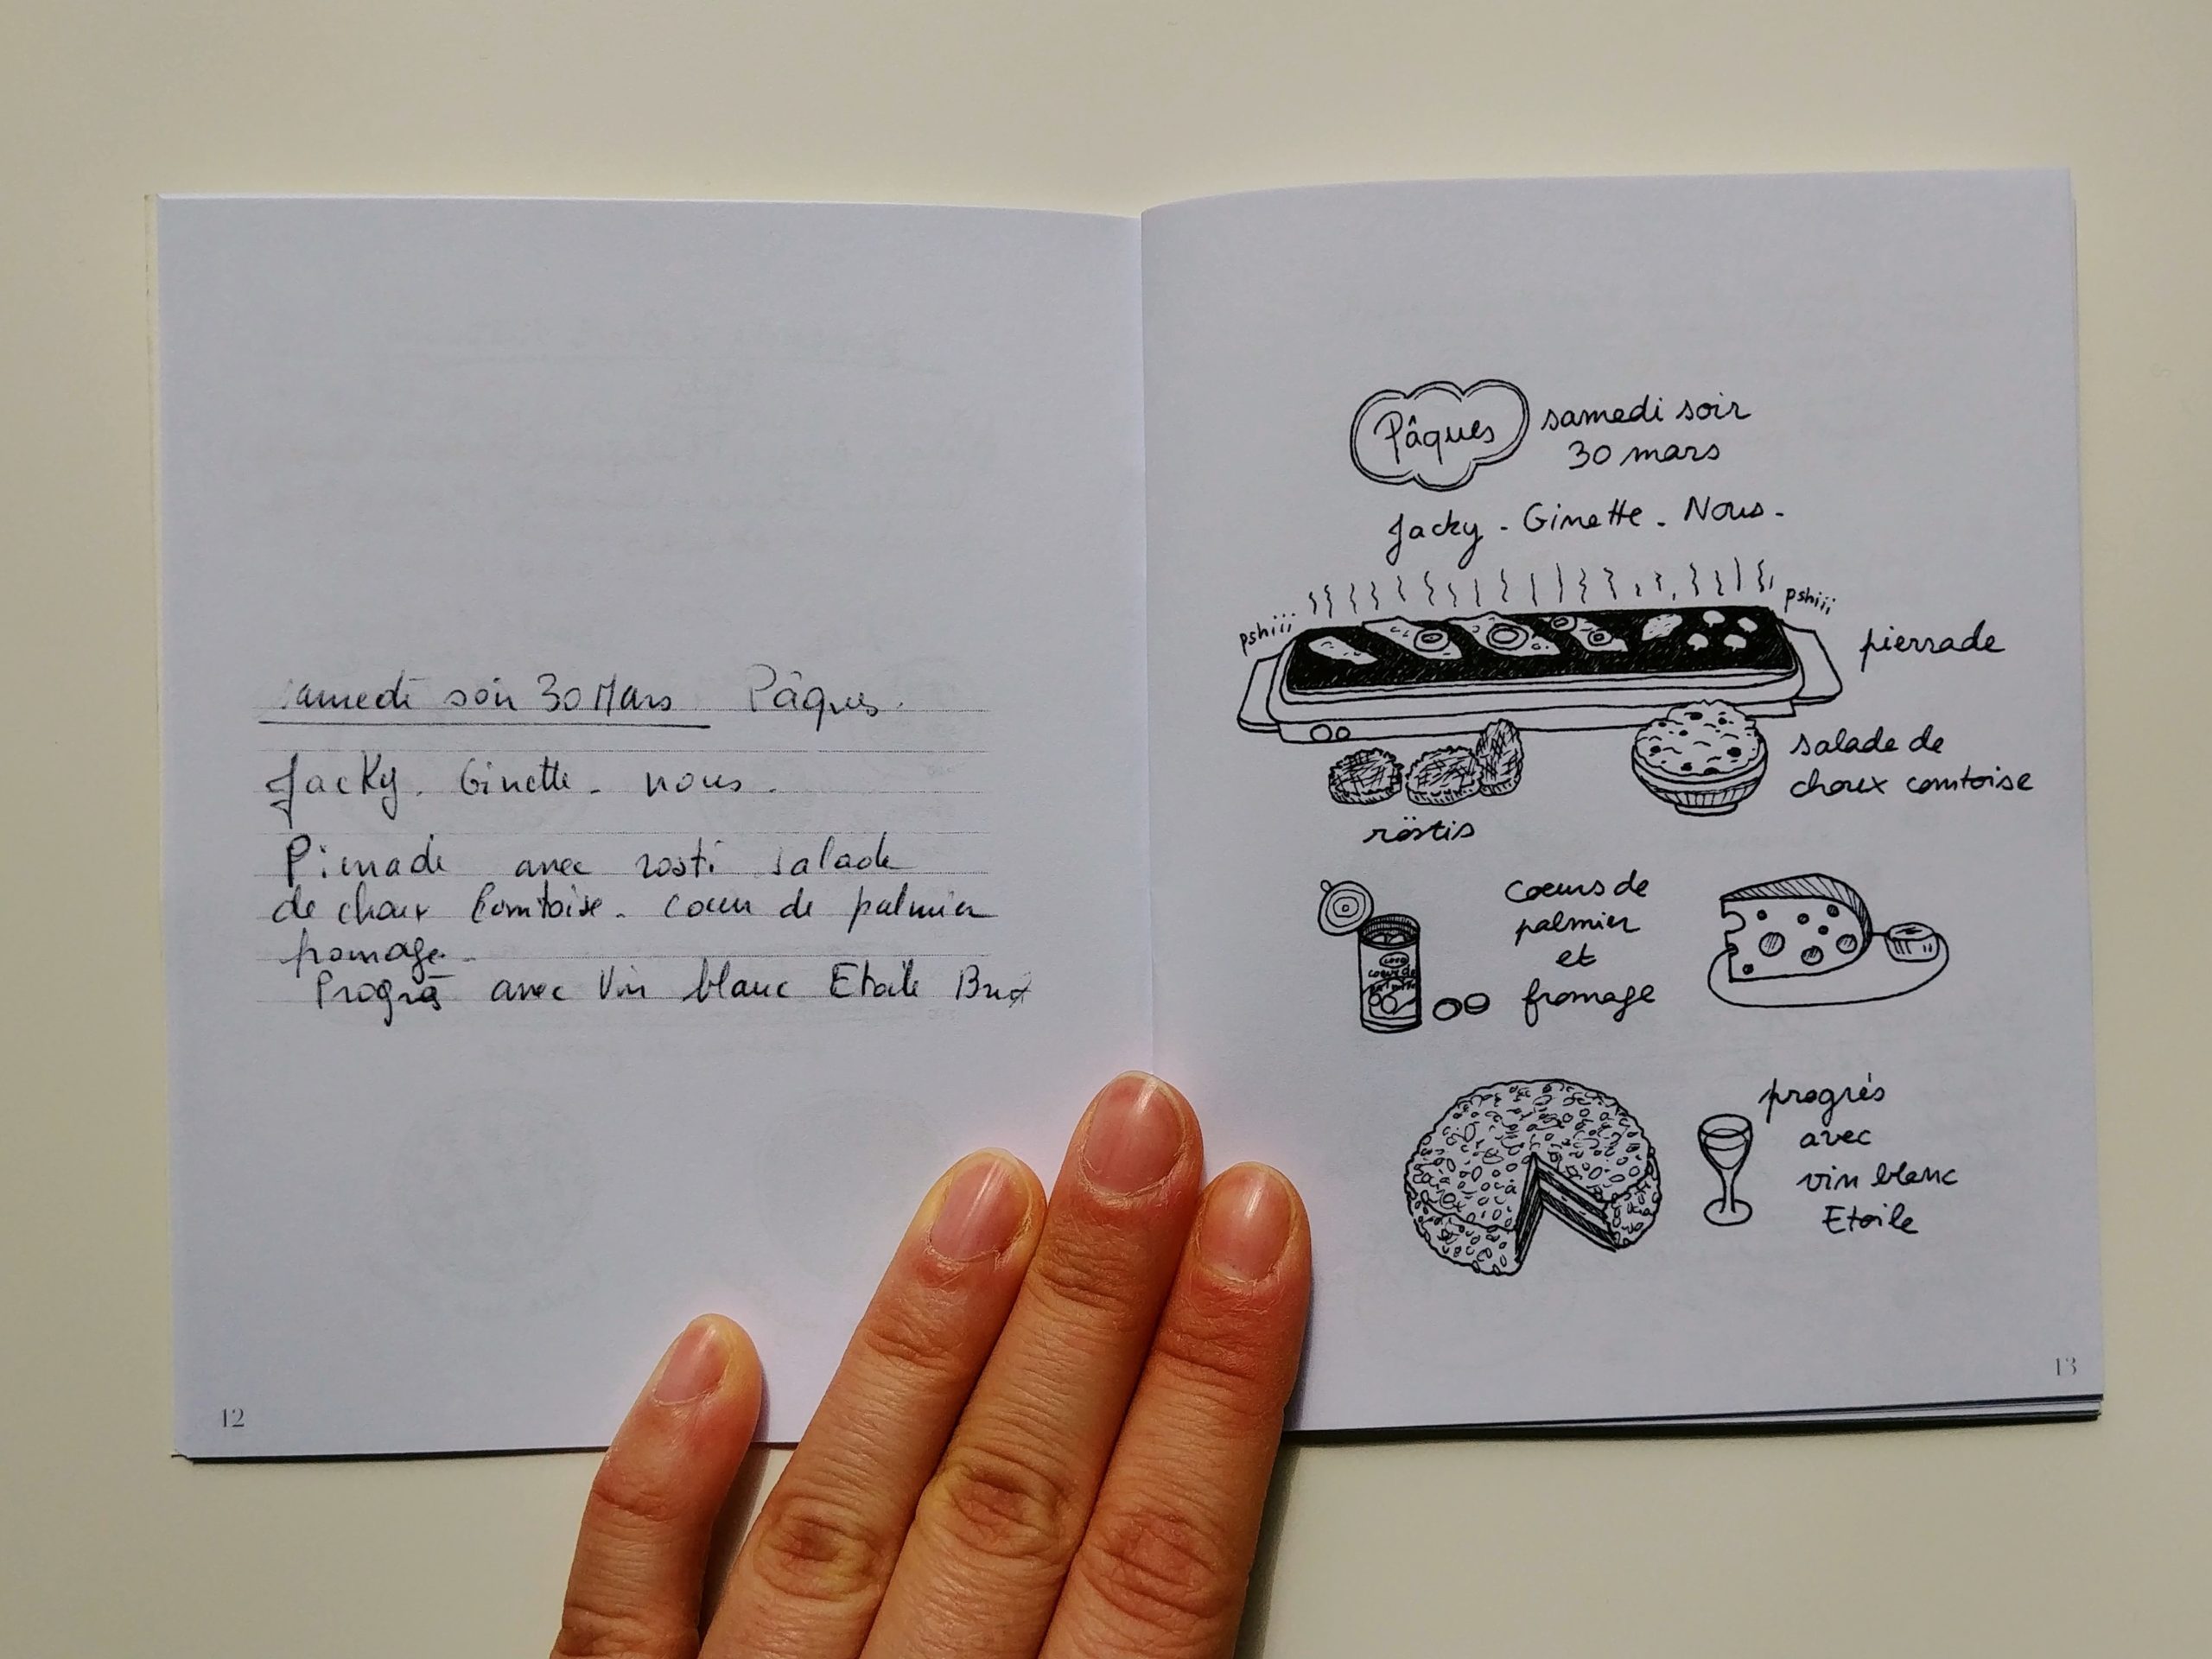 samedi soir 30 Mars Pâques.
Jacky. Ginette. nous.
Pierrade avec rosti salade
de choux Comtoise. coeur de palmier
fromage.
Progrès avec Vin blanc Etoile Brut
12
Pâques
samedi soir
30 mars
Jacky - Ginette - Nous -
pshiii
pshiii
pierrade
salade de
choux comtoise
röstis
coeurs de
palmier
et
fromage
coeurs de
progrés
avec
vin blanc
Etoile
13